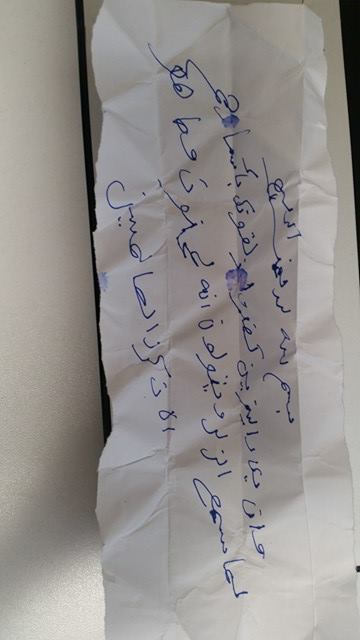 بسم الله الرحمن الرحيم
وان يكاد الذين كفروا ليزلقونك بأبصارهم
لما سمع الذكر ويقولون انه لمجنون وما هو
الا ذكر للعالمين